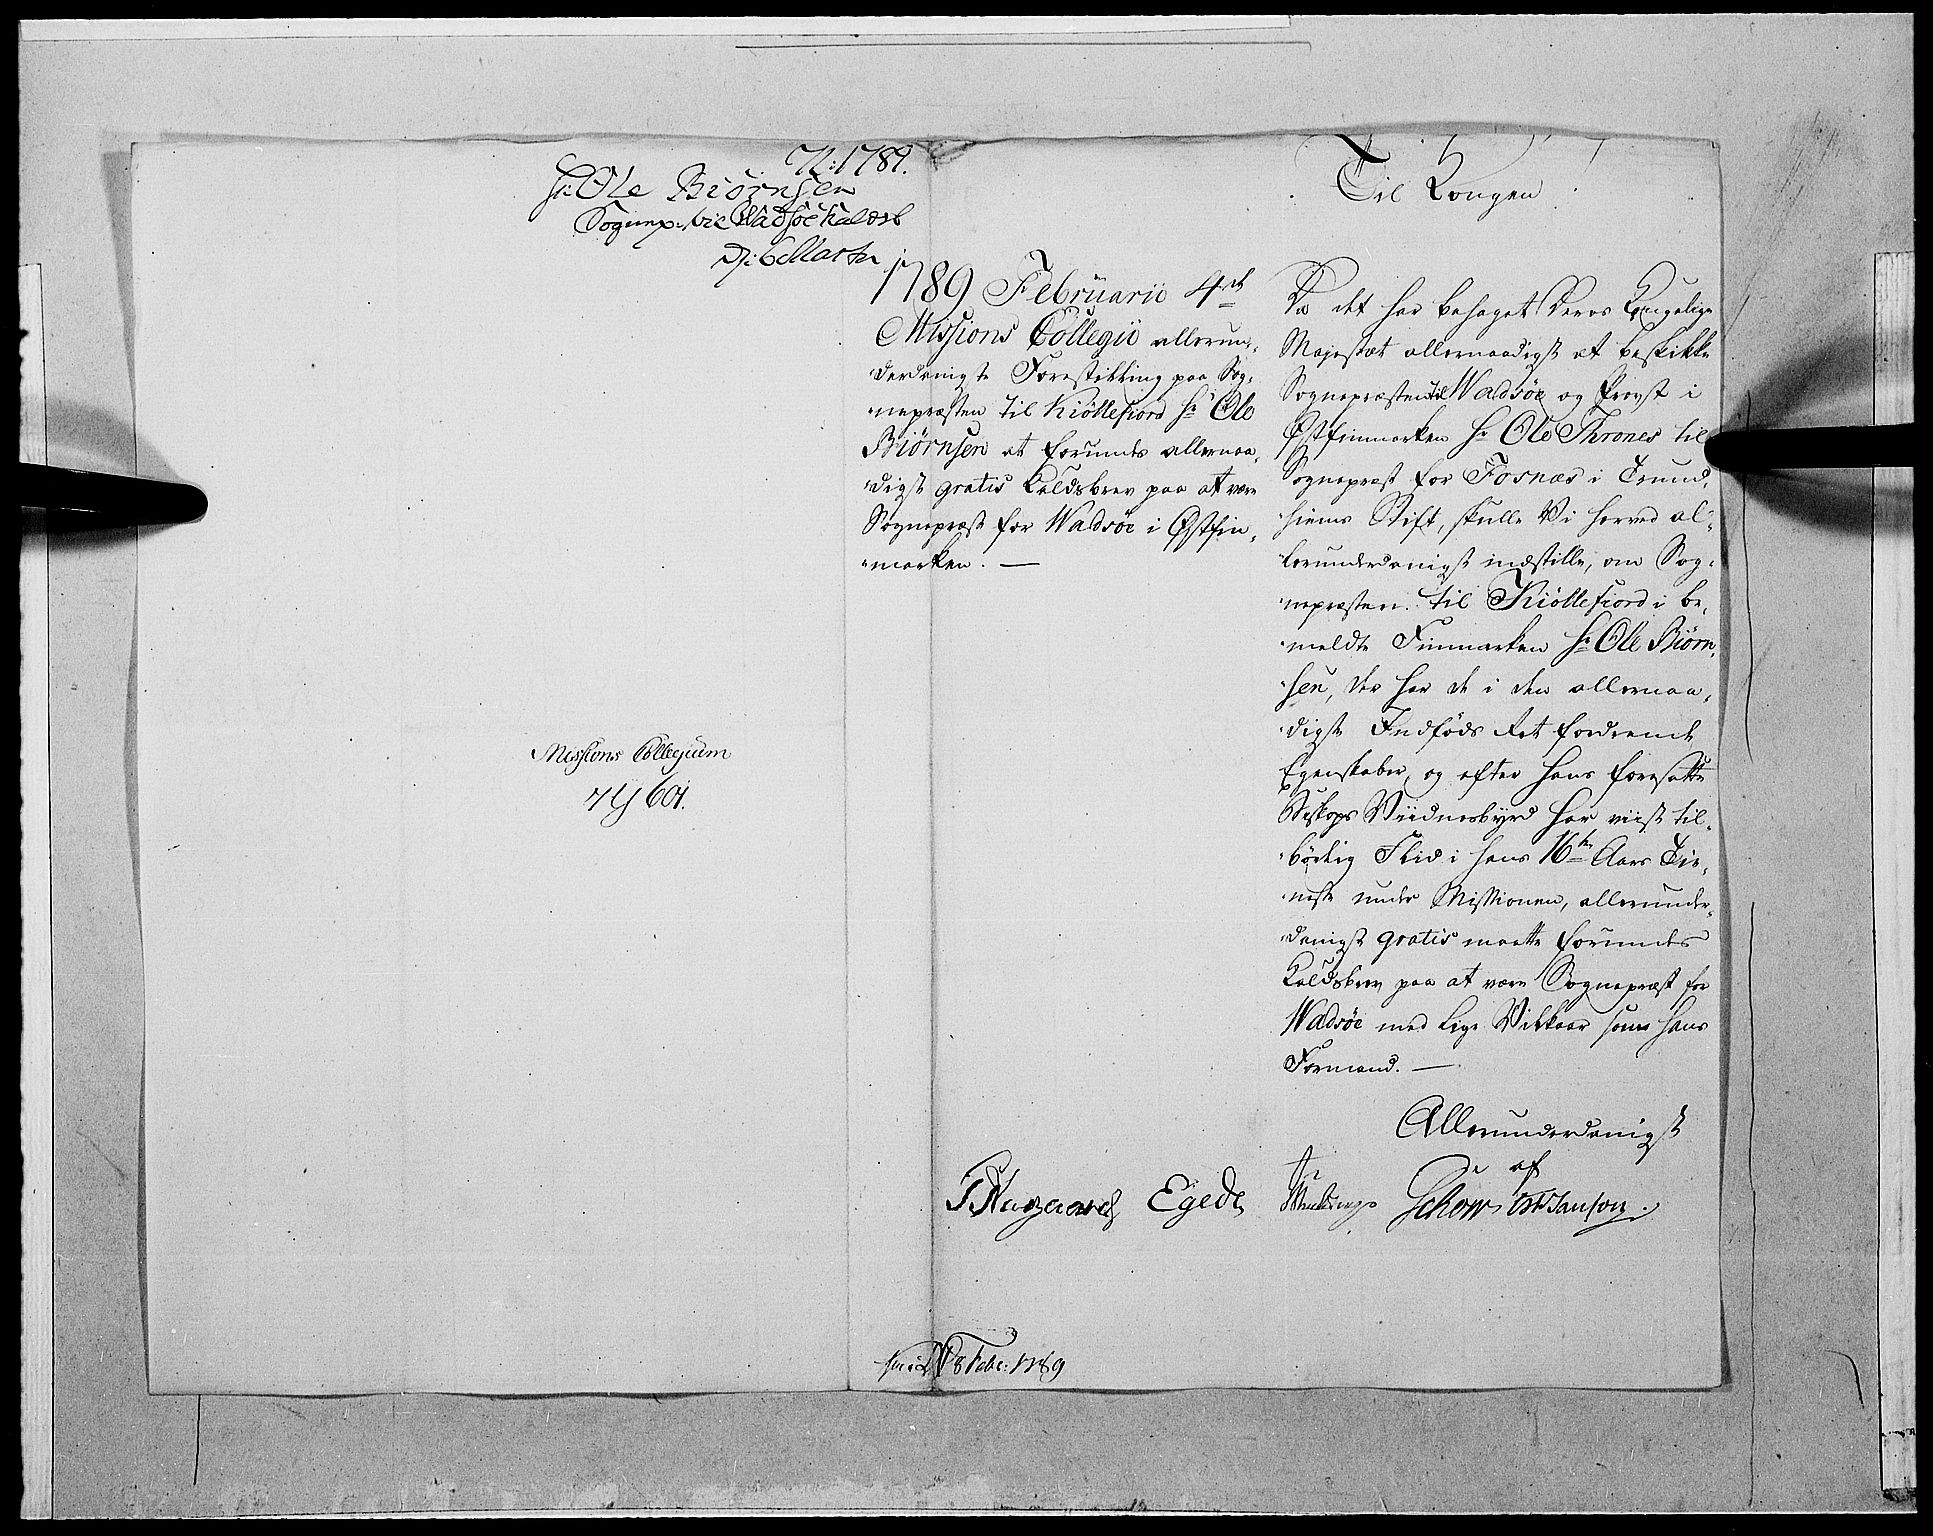 72:1789.
Hr: Ole Biörnsen
Sognep: til Wadsöe Kalds
D: 6 Martz
Missions Collegium
601.
1789 Februarii 4de
Missions Collegii allerun-
derdanigste Forestilling paa Sog-
nepræsten til Kiöllefiord Hr Ole
Biörnsen at forundes allernaa-
digst gratis Kaldsbrev paa at være
Sognepræst for Wadsöe i Østfin-
marken. —
Til Kongen
Da det har behaget Deres Kongelige
Majestæt allernaadigst at beskikke
Sognepræsten til Wadsöe og Provst i
Østfinmarken Hr Ole Thrones til
Sognepræst for Fosnæs i Trund-
hiems Stift, skulle Vi herved al-
lerunderdanigst indstille, om Sog-
nepræsten til Kiöllefiord i be-
meldte Finmarken Hr Ole Biörn-
sen, der har de i den allernaa-
digste Indföds Ret fordrende
Egenskaber, og efter hans foresatte
Biskops Vidnesbyrd har viist til-
börlig Flid i hans 16 Aars Tie-
neste under Missionen, allerunder-
danigst gratis maatte forundes
Kaldsbrev paa at være Sognepræst for
Wadsöe med lige Vilkaar som hans
Formand. —
Allerunderdanigst
af
Egede Schow Janson.
18 Febr: 1789